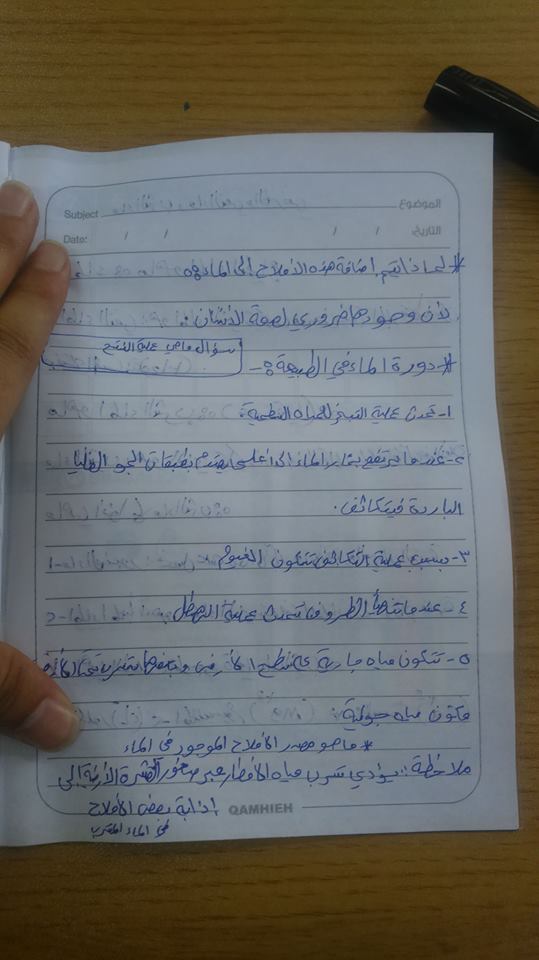 الموضوع Subject
التاريخ / / / / Date:
# لماذا تتم إضافة هذه الأملاح إلى الماء؟
لأن وجودها ضروري لصحة الأنسان.
سؤال ماهي عملية النتح
# دورة الماء في الطبيعة:-
١- تحدث عملية التبخر للمياه السطحية
٢- عندما يرتفع بخار الماء الى اعلى يصتدم بطبقات الجو العليا
الباردة فيتكاثف.
٣- بسبب عملية التكاثف تتكون الغيوم
٤- عندما تتهيأ الظروف تحدث عملية الهطل
٥- تتكون مياه جارية على سطح الأرض وبعضها يتسرب تحت الأرض
مكون مياه جوفية
* ماهو مصدر الأملاح الموجود في الماء
ملاحظة: يؤدي تسرب مياه الأمطار عبر صخور القشرة الأرضية إلى
إذابة بعض الأملاح
في الماء المتسرب
QAMHIEH